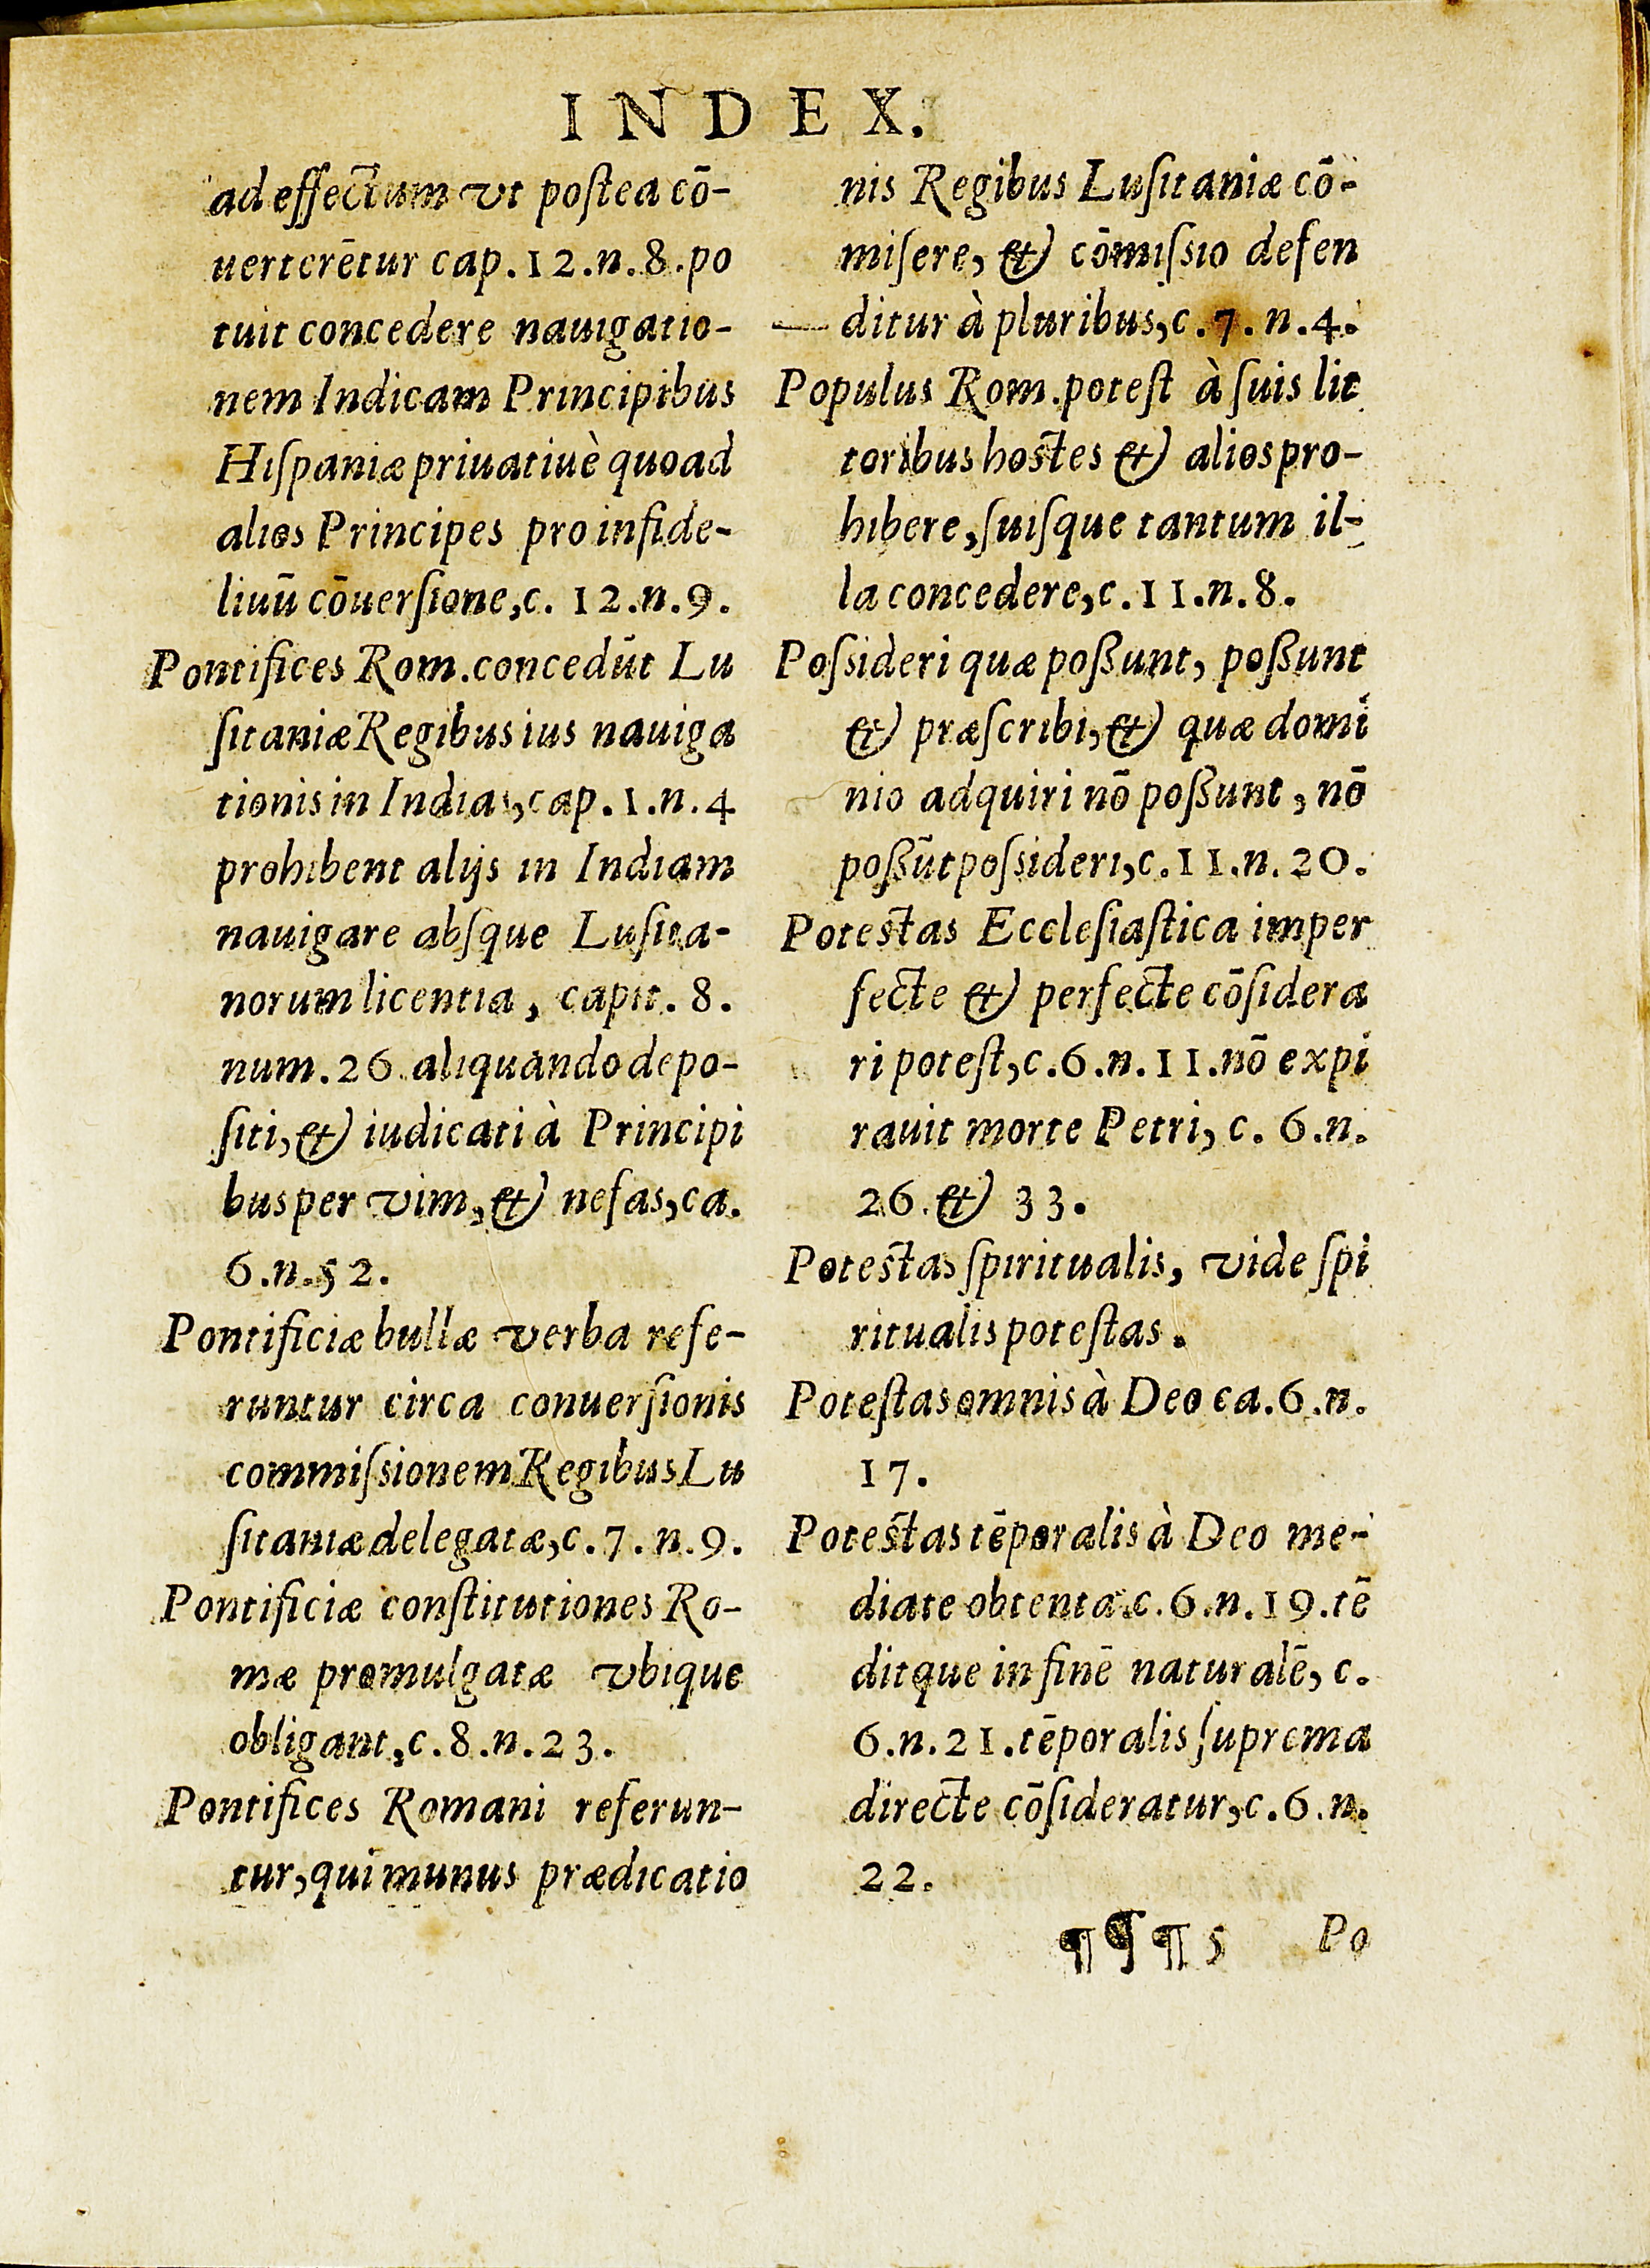 INDEX.
ad effectum vt poſtea cō-
uerterētur cap.12.n.8.po
tuit concedere nauigatio-
nem Indicam Principibus
Hiſpaniæ priuatiuè quoad
alios Principes pro infide-
liuū cōuerſione,c. 12.n.9.
Pontifices Rom.concedūt Lu
ſitaniæ Regibus ius nauiga
tionis in Indias,cap.1.n.4
prohibent alijs in Indiam
nauigare abſque Luſita-
norum licentia, capit.8.
num.26 aliquando depo-
ſiti,& iudicati à Principi
bus per vim,& nefas,ca.
6.n.52.
Pontificiæ bullæ verba refe-
runtur circa conuerſionis
commiſsionem Regibus Lu
ſitaniæ delegatæ,c.7.n.9.
Pontificiæ conſtitutiones Ro-
mæ promulgatæ vbique
obligant,c.8.n.23.
Pontifices Romani referun-
tur,qui munus prædicatio
nis Regibus Luſitaniæ cō-
miſere, & cōmiſsio defen
ditur à pluribus,c.7.n.4.
Populus Rom.poteſt à ſuis lit
toribus hoſtes & alios pro-
hibere,ſuiſque tantum il-
la concedere,c.11.n.8.
Poſsideri quæ poßunt, poßunt
& præſcribi,& quæ domi
nio adquiri nō poßunt, nō
poßūt poſsideri,c.11.n.20.
Poteſtas Eccleſiaſtica imper
fecte & perfecte cōſidera
ri poteſt,c.6.n.11.nō expi
rauit morte Petri, c. 6.n.
26.& 33.
Poteſtas ſpiritualis, vide ſpi
ritualis poteſtas.
Poteſtas omnis à Deo ca.6.n.
17.
Poteſtas tēporalis à Deo me-
diate obtenta.c.6.n.19.tē
ditque in finē naturalē, c.
6.n.21.tēporalis ſuprema
directe cōſideratur,c.6.n.
22.
¶¶¶5 Po